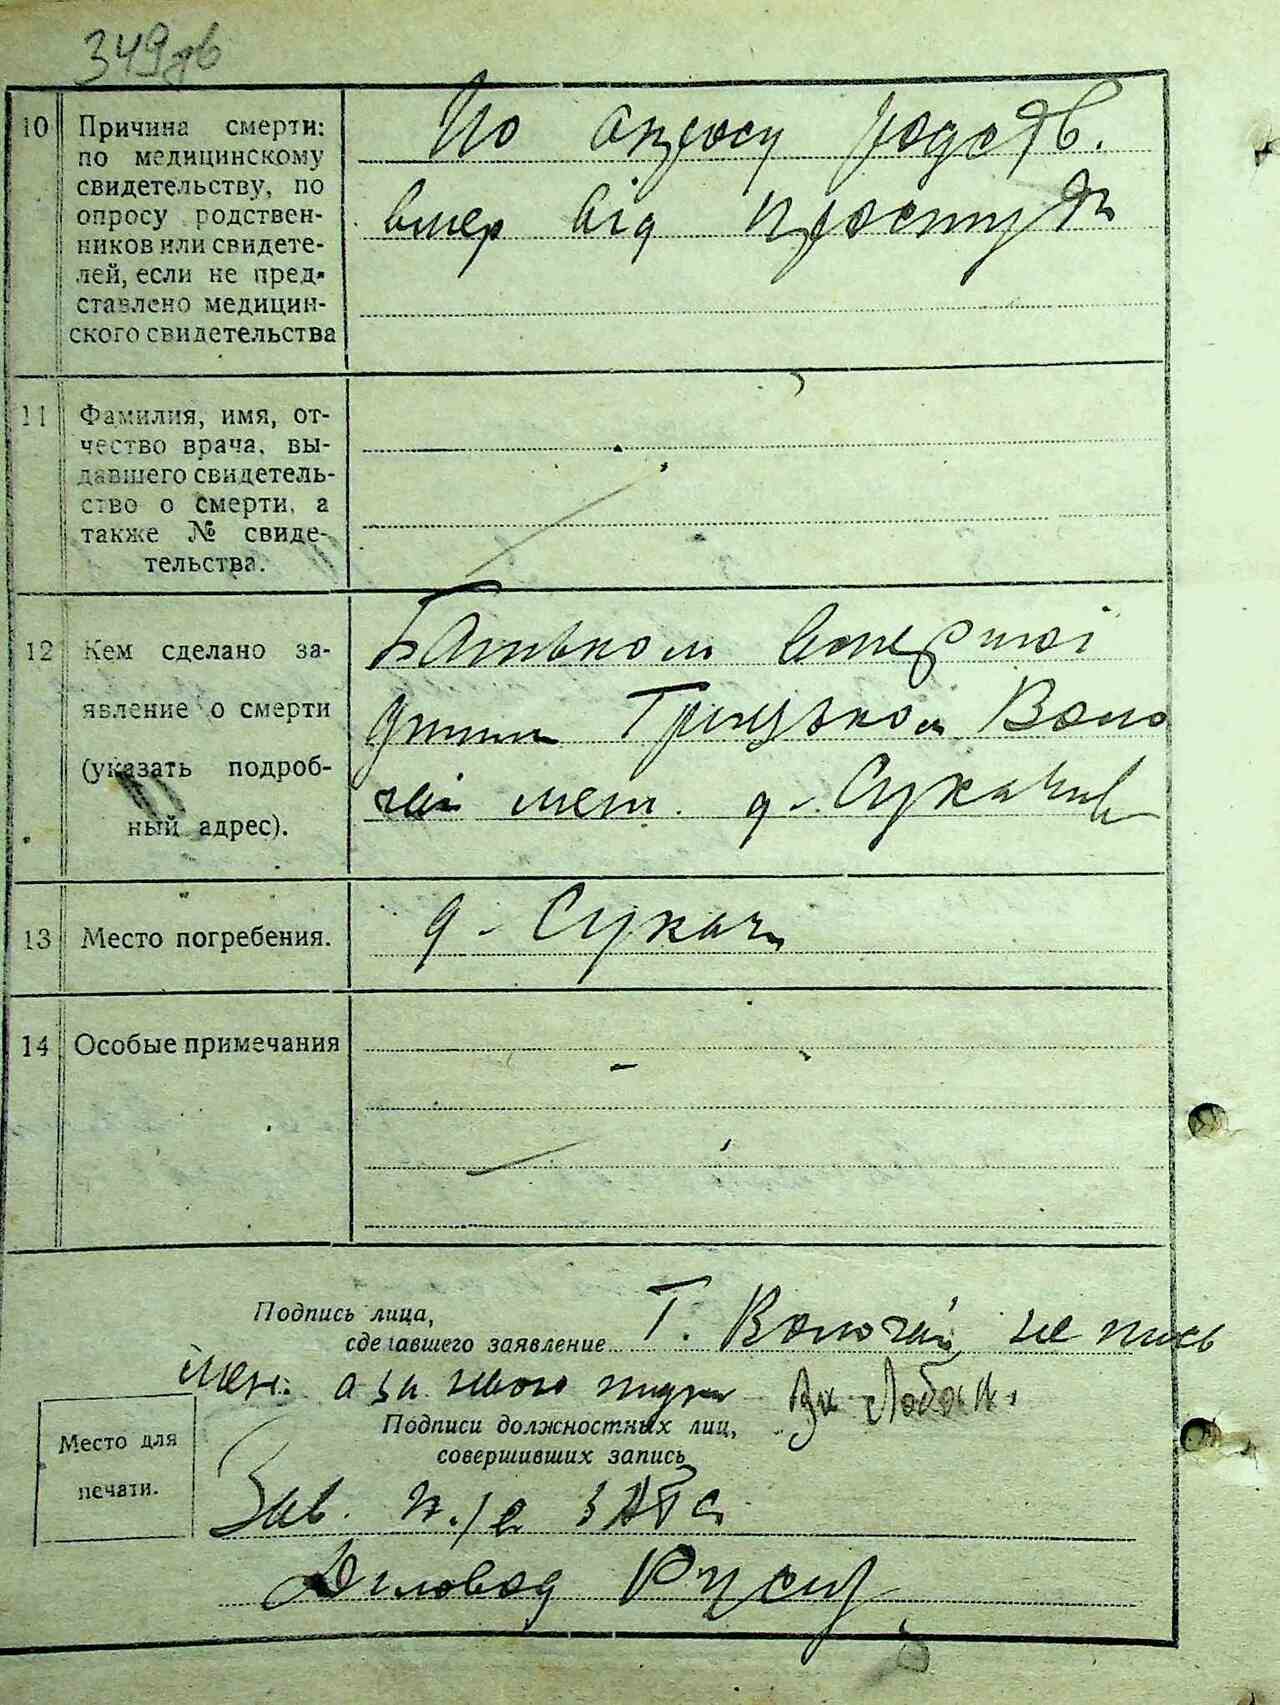 10 Причина смерти:
по медицинскому
свидетельству, по
опросу родствен-
ников или свидете-
лей, если не пред-
ставлено медицин-
ского свидетельства
По опросу родств.
вмер від простуди
11 Фамилия, имя, от-
чество врача, вы-
давшего свидетель-
ство о смерти, а
также № свиде-
тельства.
12 Кем сделано за-
явление о смерти
(указать подроб-
ный адрес).
Батьком вмершої
Грицьком Воло
чай меш. д. Сукачів
13 Место погребения.
д. Сукачі
14 Особые примечания
-
Подпись лица,
сделавшего заявление Т. Волочай не пись
мен. а за нього
Подписи должностных лиц,
совершивших запись
Место для
печати.
Зав. ЗАГС
Діловод